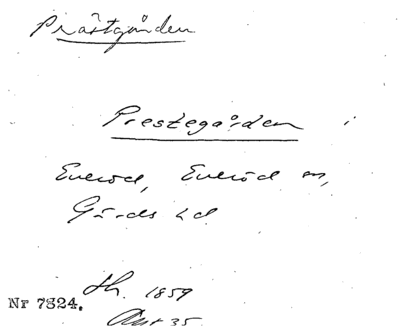 Prästgården
Prestegården i
Everöd, Everöd sn,
Gärds hd
Nr 7324. th. 1859
Ant 35